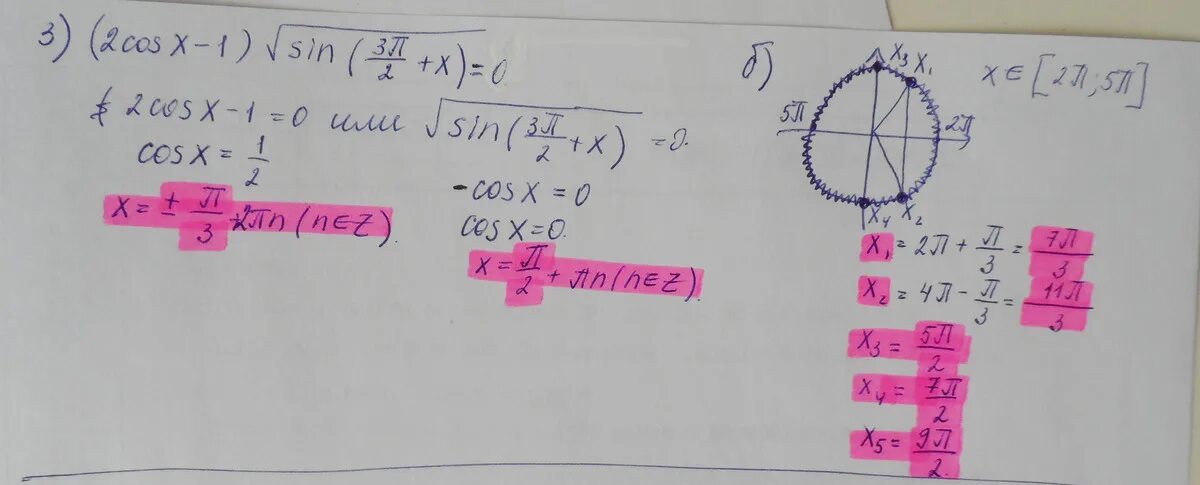 3) (2cos x - 1) √sin (3π/2 + x) = 0
2cos x - 1 = 0 или √sin (3π/2 + x) = 0.
cos x = 1/2
x = ± π/3 + 2πn (n ∈ Z).
-cos x = 0
cos x = 0.
x = π/2 + πn (n ∈ Z).
б)
x ∈ [2π; 5π]
x₃ x₁
5π 2π
x₄ x₂
x₁ = 2π + π/3 = 7π/3
x₂ = 4π - π/3 = 11π/3
x₃ = 5π/2
x₄ = 7π/2
x₅ = 9π/2.